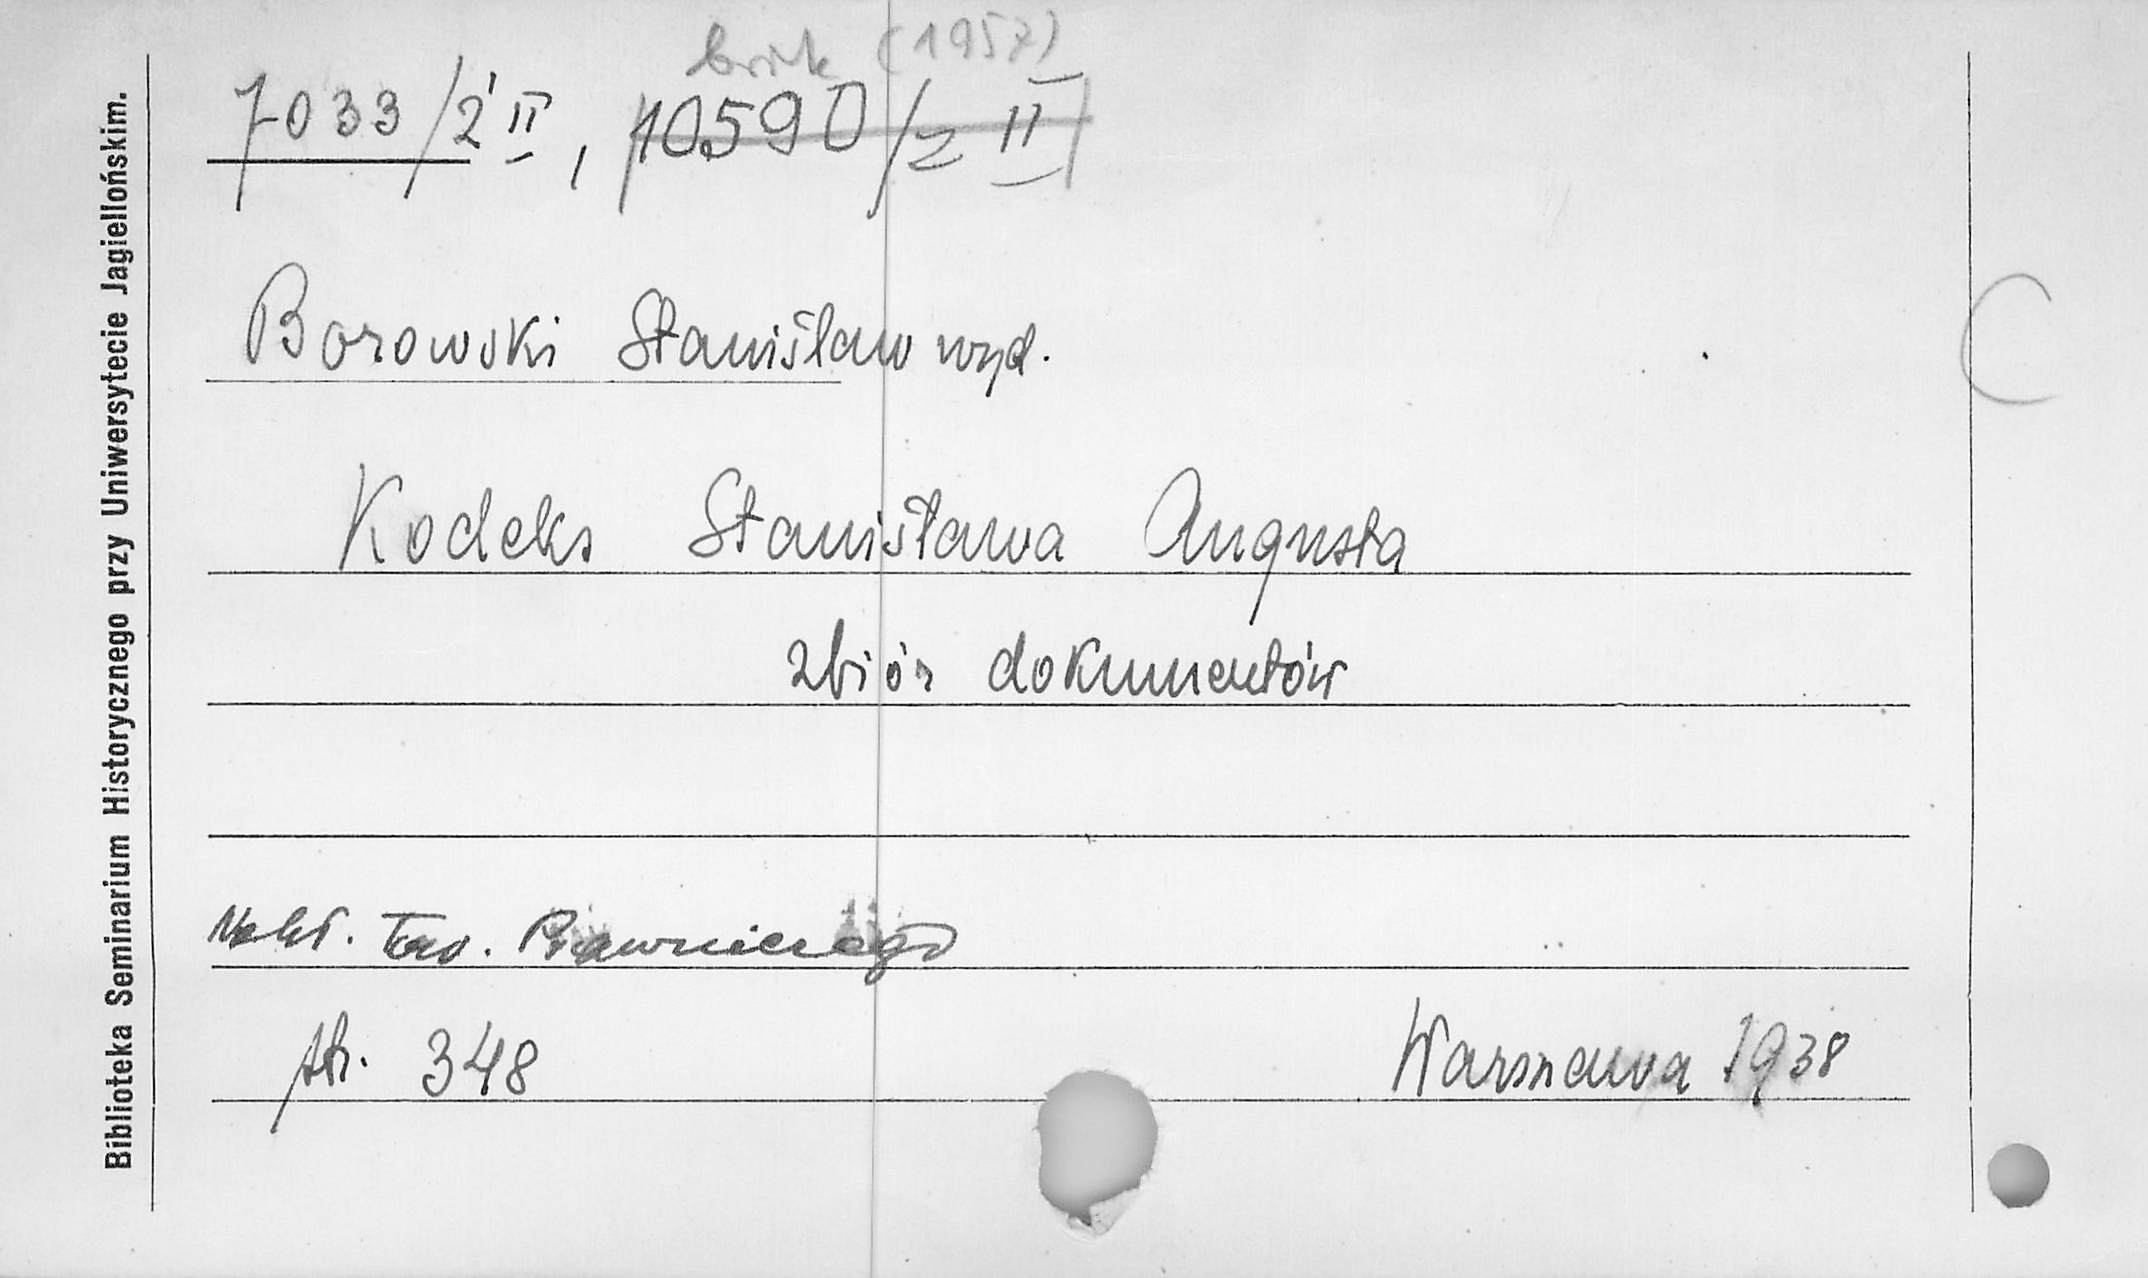 brak (1957)
7033/2 II, 10590/z II
Borowski Stanisław wyd.
Kodeks Stanisława Augusta
zbiór dokumentów
Nakł. Tow. Prawniczego
str. 348
Warszawa 1938
C
Biblioteka Seminarium Historycznego przy Uniwersytecie Jagiellońskim.